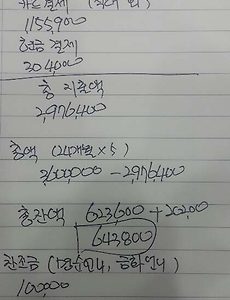 카드결제
1,155,900
현금결제
304,000
총 지출액
2,976,400
총액 (24개월×5)
3,600,000 - 2,976,400
총잔액 623,600 + 20,200
643,800
찬조금 (명순언니, 금화언니)
100,000